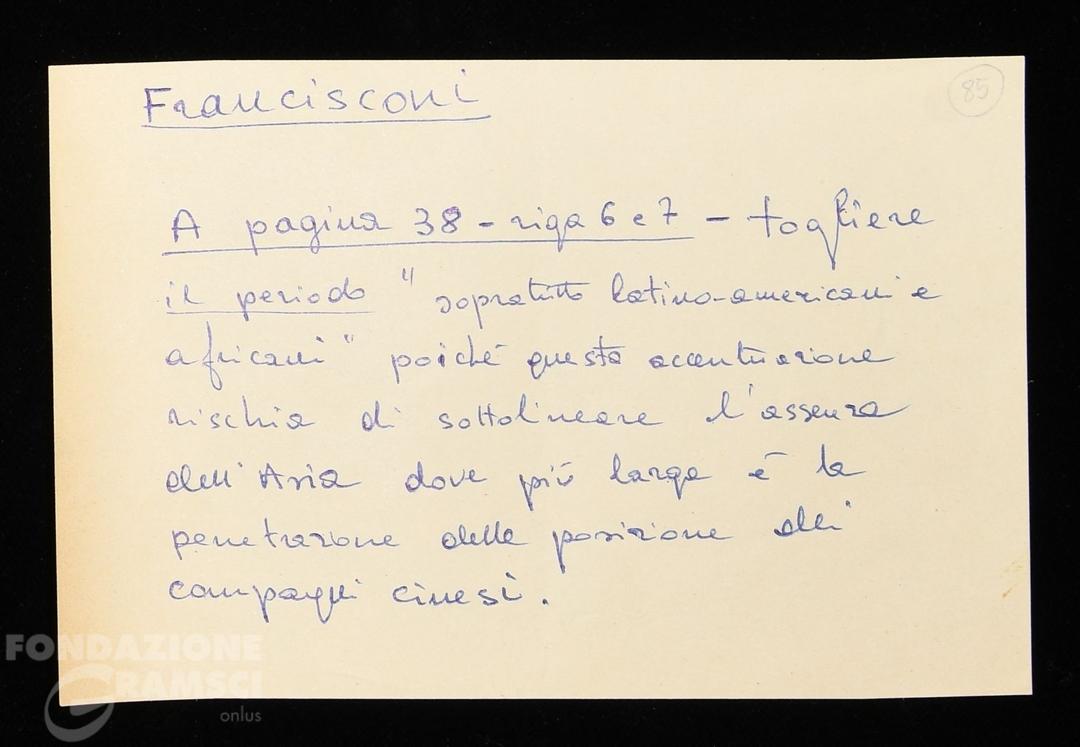 Francisconi
85
A pagina 38 - riga 6 e 7 - togliere
il periodo "sopratutto latino-americani e
africani" poiché questa accentuazione
rischia di sottolineare l'assenza
dell'Asia dove più larga è la
penetrazione delle posizione dei
compagni cinesi.
FONDAZIONE
GRAMSCI
onlus